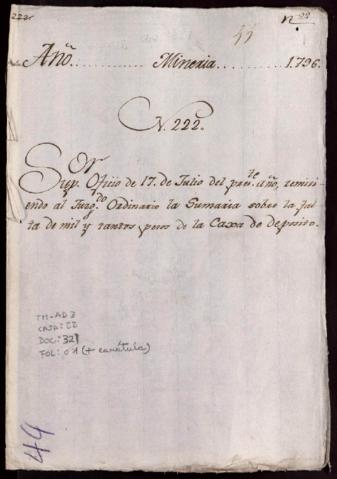 222.
n.º 22
Año......... Mineria......... 1796.
N. 222.
Sup.or Oficio de 17. de Julio del pres.te año, remiti-
endo al Juzg.do Ordinario la Sumaria sobre la fal-
ta de mil y tantos pesos de la Caxa de deposito.
TM-AD 3
CAJA: 22
DOC: 321
FOL: 01 (+ carátula)
49